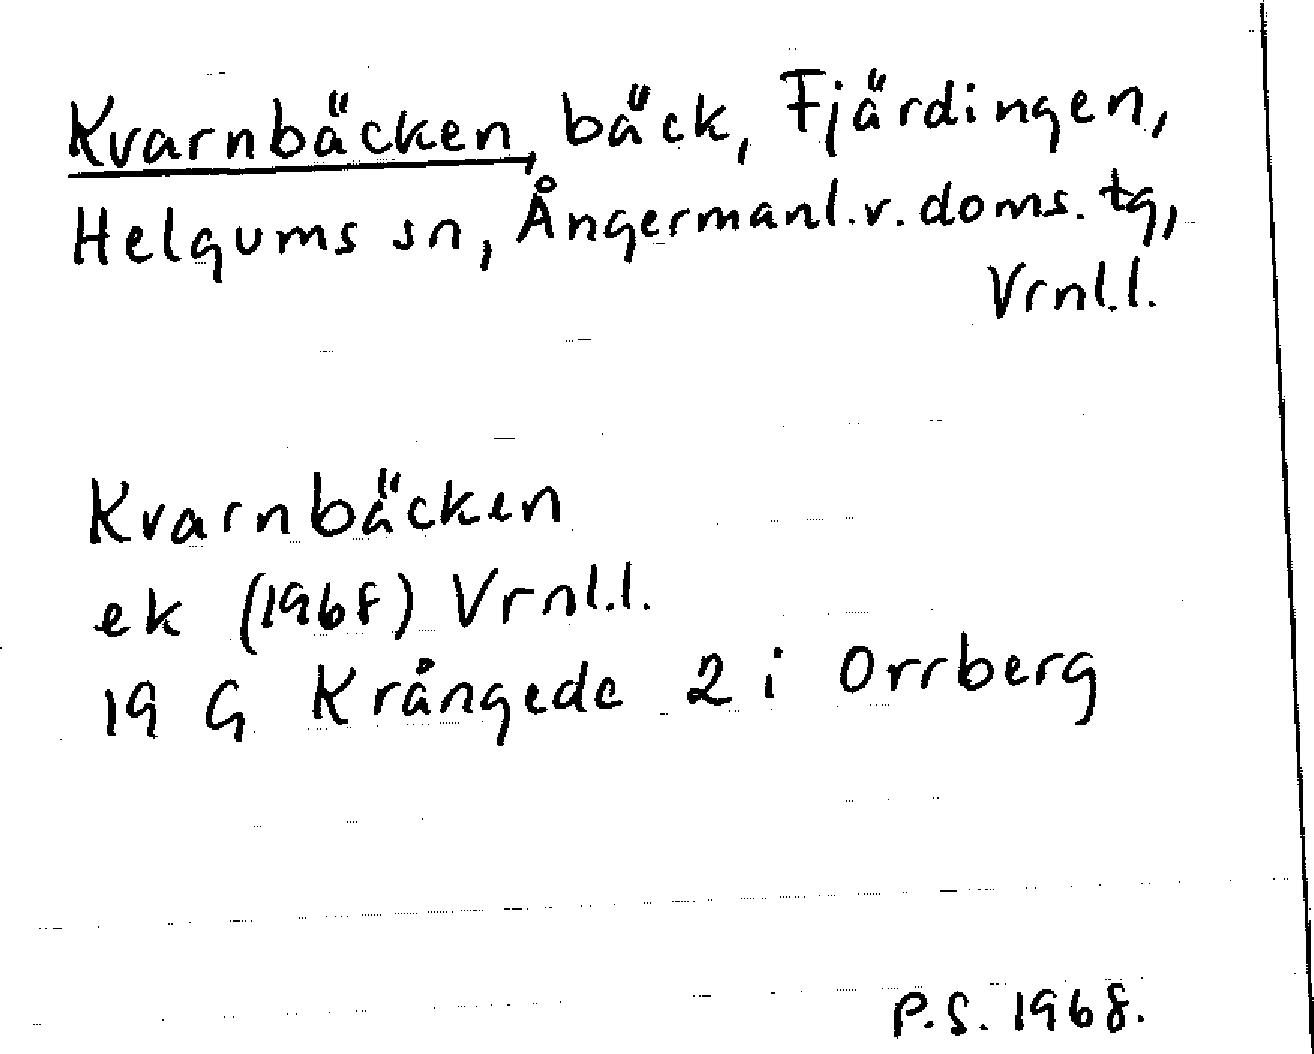 Kvarnbäcken, bäck, Fjärdingen,
Helgums sn, Ångermanl.v.doms.tg,
Vrnl.l.
Kvarnbäcken
ek (1968) Vrnl.l.
19 G Krångede 2 i Orrberg
P.S. 1968.